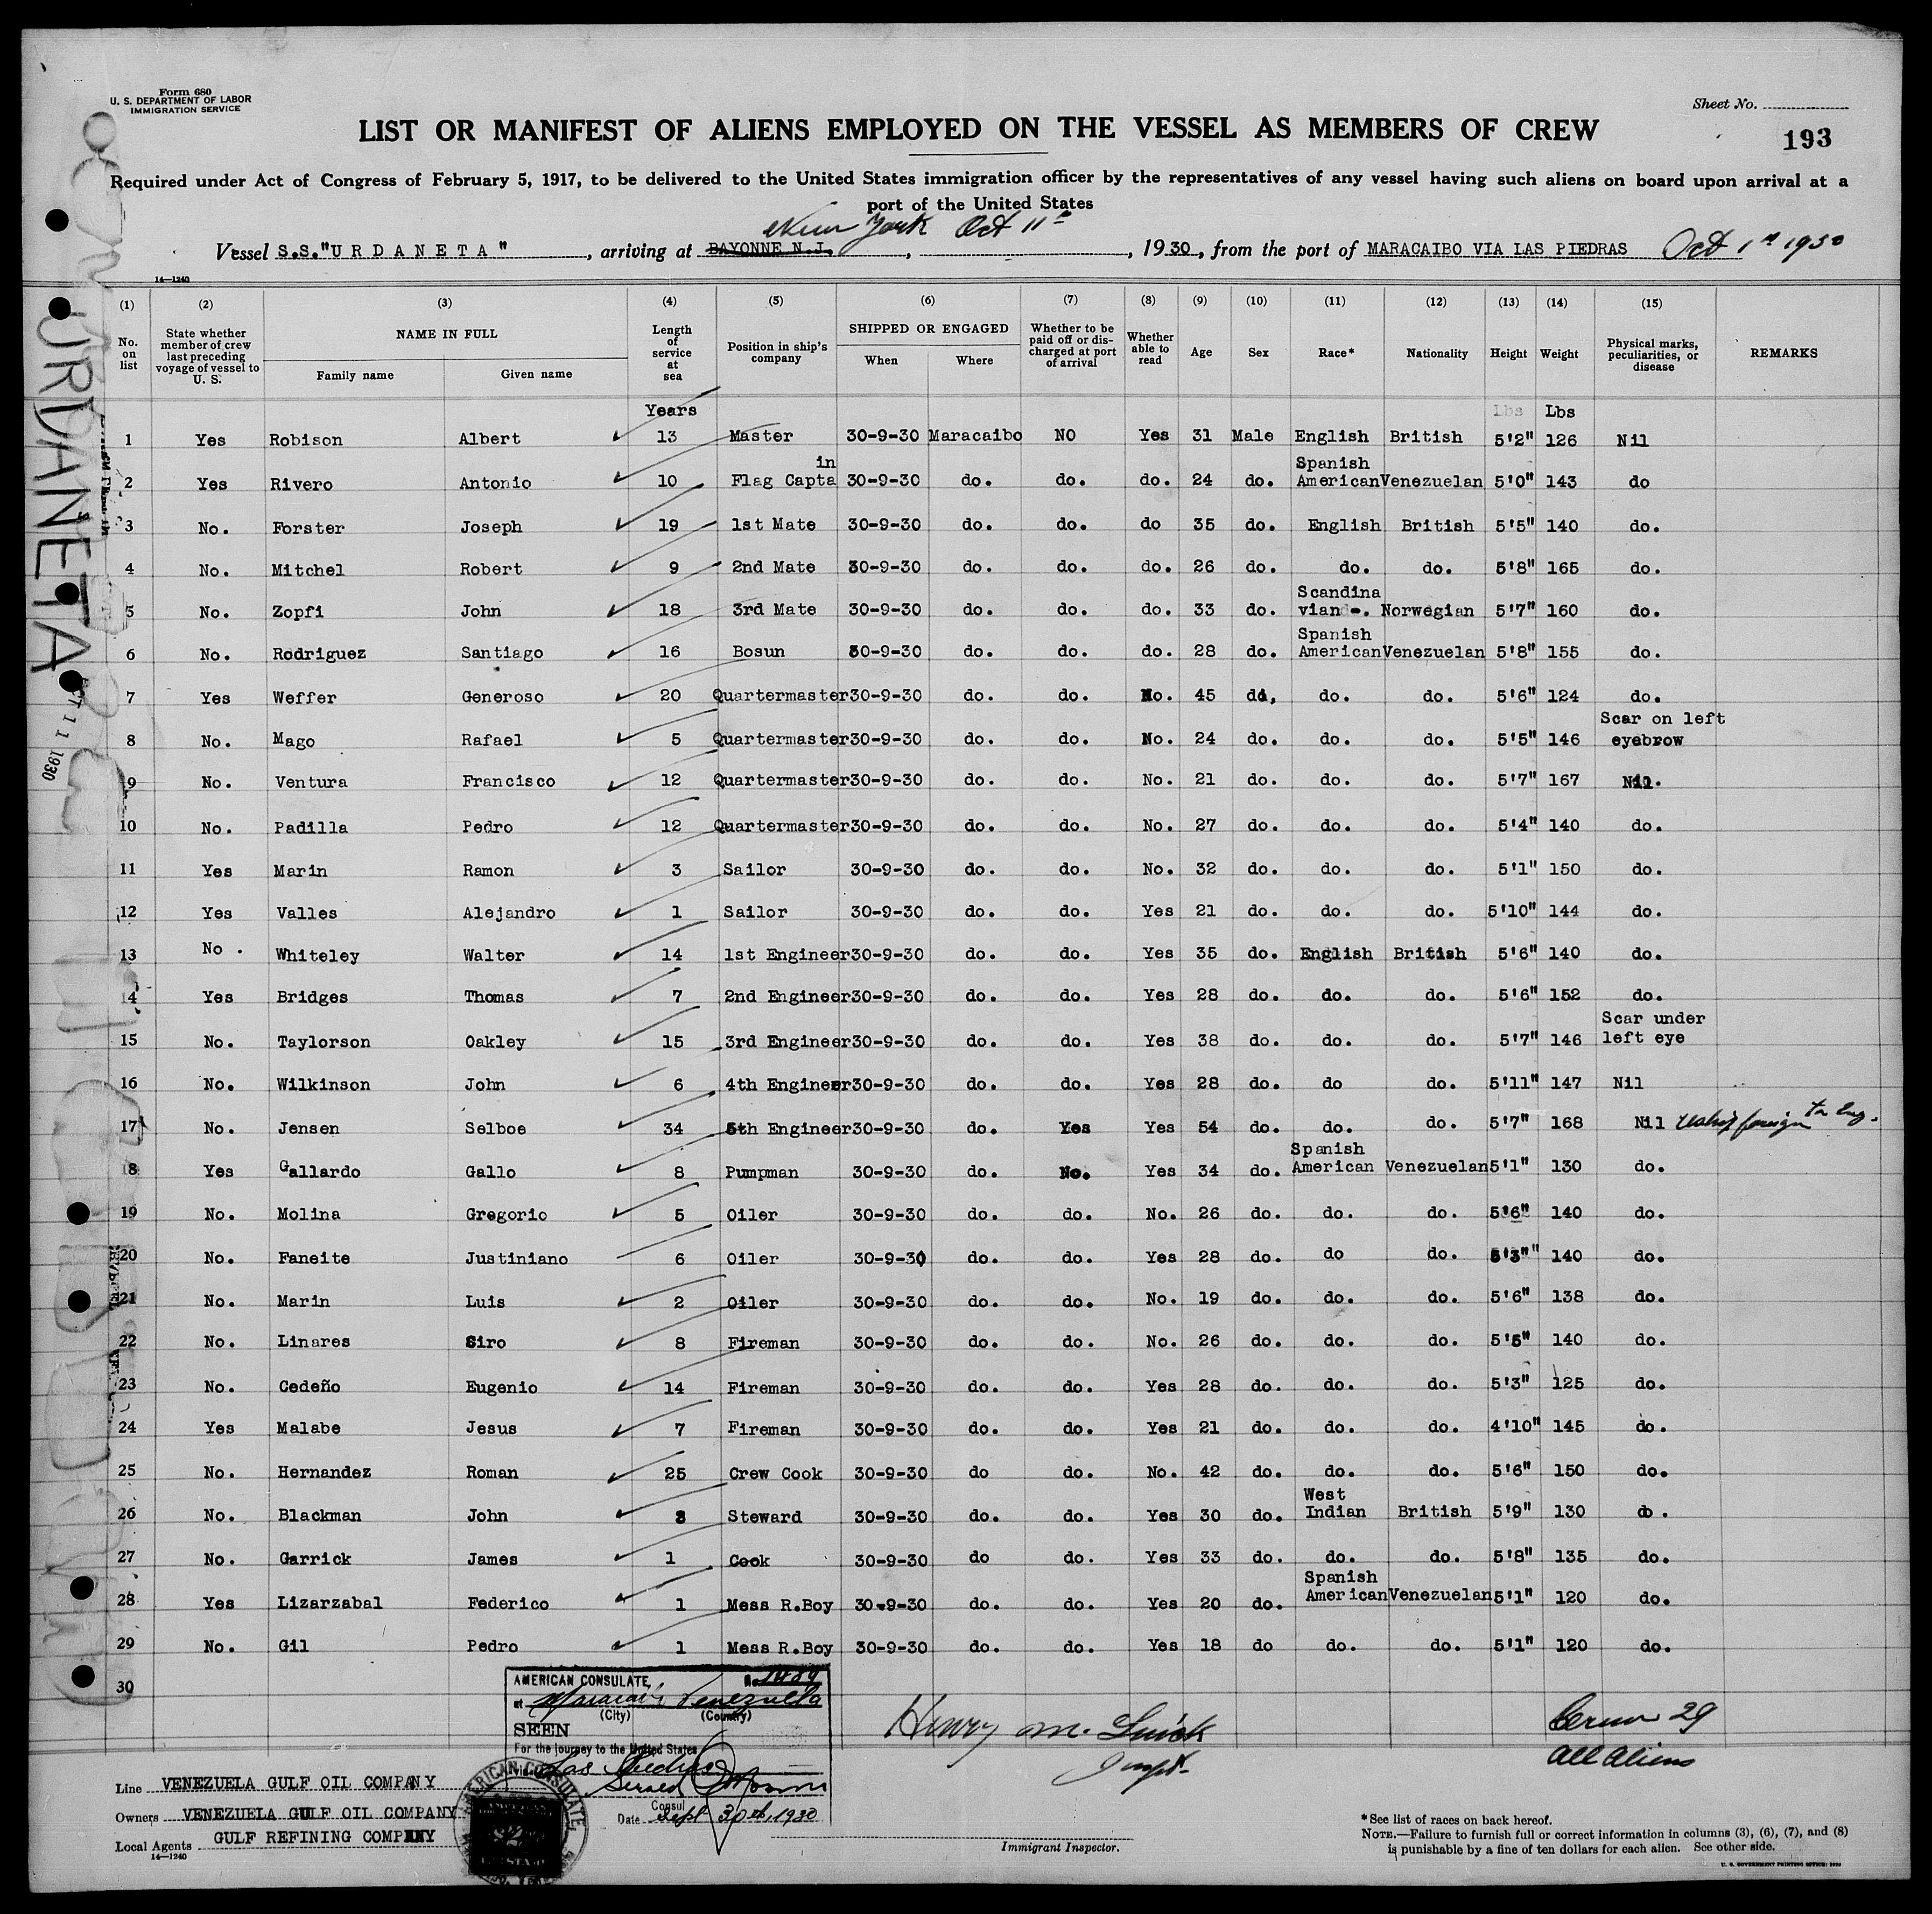 Form 680
U. S. DEPARTMENT OF LABOR
IMMIGRATION SERVICE
Sheet No.
LIST OR MANIFEST OF ALIENS EMPLOYED ON THE VESSEL AS MEMBERS OF CREW
193
Required under Act of Congress of February 5, 1917, to be delivered to the United States immigration officer by the representatives of any vessel having such aliens on board upon arrival at a
port of the United States
New York Oct 11th
Vessel S.S."URDANETA", arriving at BAYONNE N.J., , 1930, from the port of MARACAIBO VIA LAS PIEDRAS Oct 1st 1930
14—1240
URDANETA
11 1930
(1) (2) (3) (4) (5) (6) (7) (8) (9) (10) (11) (12) (13) (14) (15)
No. on list | State whether member of crew last preceding voyage of vessel to U. S. | NAME IN FULL Family name Given name | Length of service at sea | Position in ship's company | SHIPPED OR ENGAGED When Where | Whether to be paid off or discharged at port of arrival | Whether able to read | Age | Sex | Race* | Nationality | Height | Weight | Physical marks, peculiarities, or disease | REMARKS
Years Lbs Lbs
1 Yes Robison Albert 13 Master 30-9-30 Maracaibo NO Yes 31 Male English British 5'2" 126 Nil
2 Yes Rivero Antonio 10 Flag Captain 30-9-30 do. do. do. 24 do. Spanish American Venezuelan 5'0" 143 do
3 No. Forster Joseph 19 1st Mate 30-9-30 do. do. do 35 do. English British 5'5" 140 do.
4 No. Mitchel Robert 9 2nd Mate 30-9-30 do. do. do. 26 do. do. do. 5'8" 165 do.
5 No. Zopfi John 18 3rd Mate 30-9-30 do. do. do. 33 do. Scandinavian Norwegian 5'7" 160 do.
6 No. Rodriguez Santiago 16 Bosun 30-9-30 do. do. do. 28 do. Spanish American Venezuelan 5'8" 155 do.
7 Yes Weffer Generoso 20 Quartermaster 30-9-30 do. do. No. 45 do, do. do. 5'6" 124 do.
8 No. Mago Rafael 5 Quartermaster 30-9-30 do. do. No. 24 do. do. do. 5'5" 146 Scar on left eyebrow
9 No. Ventura Francisco 12 Quartermaster 30-9-30 do. do. No. 21 do. do. do. 5'7" 167 Nil.
10 No. Padilla Pedro 12 Quartermaster 30-9-30 do. do. No. 27 do. do. do. 5'4" 140 do.
11 Yes Marin Ramon 3 Sailor 30-9-30 do. do. No. 32 do. do. do. 5'1" 150 do.
12 Yes Valles Alejandro 1 Sailor 30-9-30 do. do. Yes 21 do. do. do. 5'10" 144 do.
13 No . Whiteley Walter 14 1st Engineer 30-9-30 do. do. Yes 35 do. English British 5'6" 140 do.
14 Yes Bridges Thomas 7 2nd Engineer 30-9-30 do. do. Yes 28 do. do. do. 5'6" 152 do.
15 No. Taylorson Oakley 15 3rd Engineer 30-9-30 do. do. Yes 38 do. do. do. 5'7" 146 Scar under left eye
16 No. Wilkinson John 6 4th Engineer 30-9-30 do. do. Yes 28 do. do do. 5'11" 147 Nil
17 No. Jensen Selboe 34 5th Engineer 30-9-30 do. Yes Yes 54 do. do. do. 5'7" 168 Nil reship foreign
18 Yes Gallardo Gallo 8 Pumpman 30-9-30 do. No. Yes 34 do. Spanish American Venezuelan 5'1" 130 do.
19 No. Molina Gregorio 5 Oiler 30-9-30 do. do. No. 26 do. do. do. 5'6" 140 do.
20 No. Faneite Justiniano 6 Oiler 30-9-30 do. do. Yes 28 do. do do. 5'3" 140 do.
21 No. Marin Luis 2 Oiler 30-9-30 do. do. No. 19 do. do. do. 5'6" 138 do.
22 No. Linares Siro 8 Fireman 30-9-30 do. do. No. 26 do. do. do. 5'5" 140 do.
23 No. Cedeño Eugenio 14 Fireman 30-9-30 do. do. Yes 28 do. do. do. 5'3" 125 do.
24 Yes Malabe Jesus 7 Fireman 30-9-30 do. do. Yes 21 do. do. do. 4'10" 145 do.
25 No. Hernandez Roman 25 Crew Cook 30-9-30 do do. No. 42 do. do. do. 5'6" 150 do.
26 No. Blackman John 3 Steward 30-9-30 do. do. Yes 30 do. West Indian British 5'9" 130 do.
27 No. Garrick James 1 Cook 30-9-30 do do. Yes 33 do. do. do. 5'8" 135 do.
28 Yes Lizarzabal Federico 1 Mess R.Boy 30-9-30 do. do. Yes 20 do. Spanish American Venezuelan 5'1" 120 do.
29 No. Gil Pedro 1 Mess R.Boy 30-9-30 do. do. Yes 18 do do. do. 5'1" 120 do.
30
AMERICAN CONSULATE, No. 1489
at Maracaibo Venezuela
(City) (Country)
SEEN
For the journey to the United States
Via Las Piedras
Consul
Date Sept 30th, 1930
AMERICAN CONSULATE
Henry M.
Inspt.
Crew 29
all aliens
Line VENEZUELA GULF OIL COMPANY
Owners VENEZUELA GULF OIL COMPANY
Local Agents GULF REFINING COMPANY
14—1240
Immigrant Inspector.
*See list of races on back hereof.
NOTE.—Failure to furnish full or correct information in columns (3), (6), (7), and (8)
is punishable by a fine of ten dollars for each alien. See other side.
U. S. GOVERNMENT PRINTING OFFICE: 1930